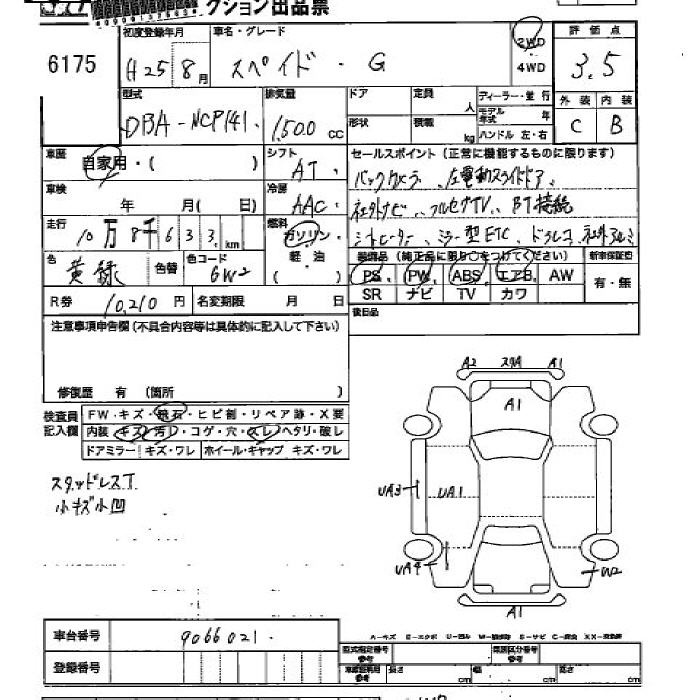 クション出品票
6175
初度登録年月
H25 8月
車名・グレード
スペイド・G
2WD
4WD
評価点
3.5
型式
DBA-NCP141
排気量
1,500 cc
ドア
定員
人
形状
積載
kg
ディーラー・並行
モデル年式 年
ハンドル 左・右
外装 内装
C B
車歴
自家用・( )
シフト
AT
セールスポイント(正常に機能するものに限ります)
バックカメラ、左電動スライドドア、
社外ナビ、フルセグTV、BT接続
シートヒーター、ミラー型ETC、ドラレコ、社外アルミ
車検
年 月( 日)
冷房
AAC
走行
10万8千633km
燃料
ガソリン・
軽油
( )
色
黄緑
色替
色コード
6W2
装備品(純正品に限り○をつけてください)
新車保証書
PS PW ABS エアB AW
有・無
SR ナビ TV カワ
R券 10,210円
名変期限 月 日
後日品
注意事項申告欄(不具合内容等は具体的に記入して下さい)
修復歴 有 (箇所 )
検査員記入欄
FW・キズ・飛石・ヒビ割・リペア跡・X要
内装 キズ・汚レ・コゲ・穴・スレ・ヘタリ・破レ
ドアミラー キズ・ワレ ホイール・キャップ キズ・ワレ
スタッドレスT
小キズ小凹
A2 スリA A1
A1
UA3
UA1
UA4
W2
A1
車台番号
9066021
登録番号
型式指定番号
参考
類別区分番号
参考
長さ cm
幅 cm
高さ cm